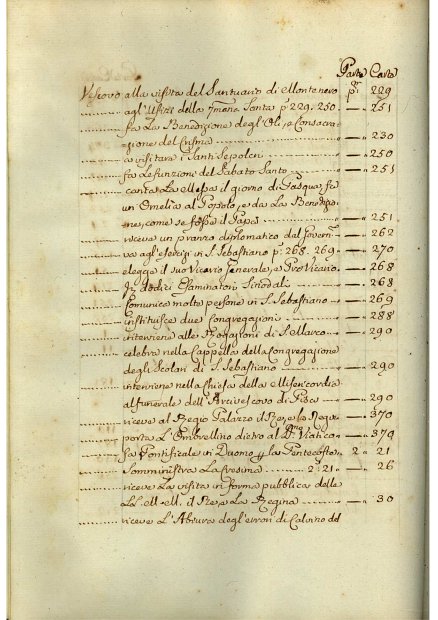 Parte Carte
Vescovo alla visita del Santuario di Montenero pª 229
agl'Ufizi della 7mana Santa p 229. 250. — 251
fa La Benedizione degl'Oli, e Consacra=
zione del Crisma — 230
a visitare i Santi Sepolcri — 250
fa le funzioni del Sabato Santo — 251
canta La Messa il giorno di Pasqua, fa
un Omelia al Popolo, e da La Benedizio
ne, come se fosse il Papa — 251
riceve un pranzo diplomatico dal Govern. — 262
va agl'esercizi in S. Sebastiano p: 268. 269. — 270
elegge il suo Vicario Generale, e ProVicario. — 268
dodici Esaminatori Sinodali — 268
Comunica molte persone in S. Sebastiano — 269
instituisce due Congregazioni — 288
interviene alle Rogazioni di S. Marco — 290
celebra nella Cappella della Congregazione
degli Scolari di S. Sebastiano — 290
interviene nella Chiesa della Misericordia
al funerale dell'Arcivescovo di Pisa — 290
riceve al Regio Palazzo il Re, e la Regn. — 370
porta L'Ombrellino dietro al Viatico — 379
fa Pontificale in Duomo p la Pentecoste 2. 21
Somministra La Cresima 2: 21. — 26
riceve La visita in forma pubblica delle
LL. MM. il Re, e La Regina — 30
riceve L'Abiura degl'errori di Calvino